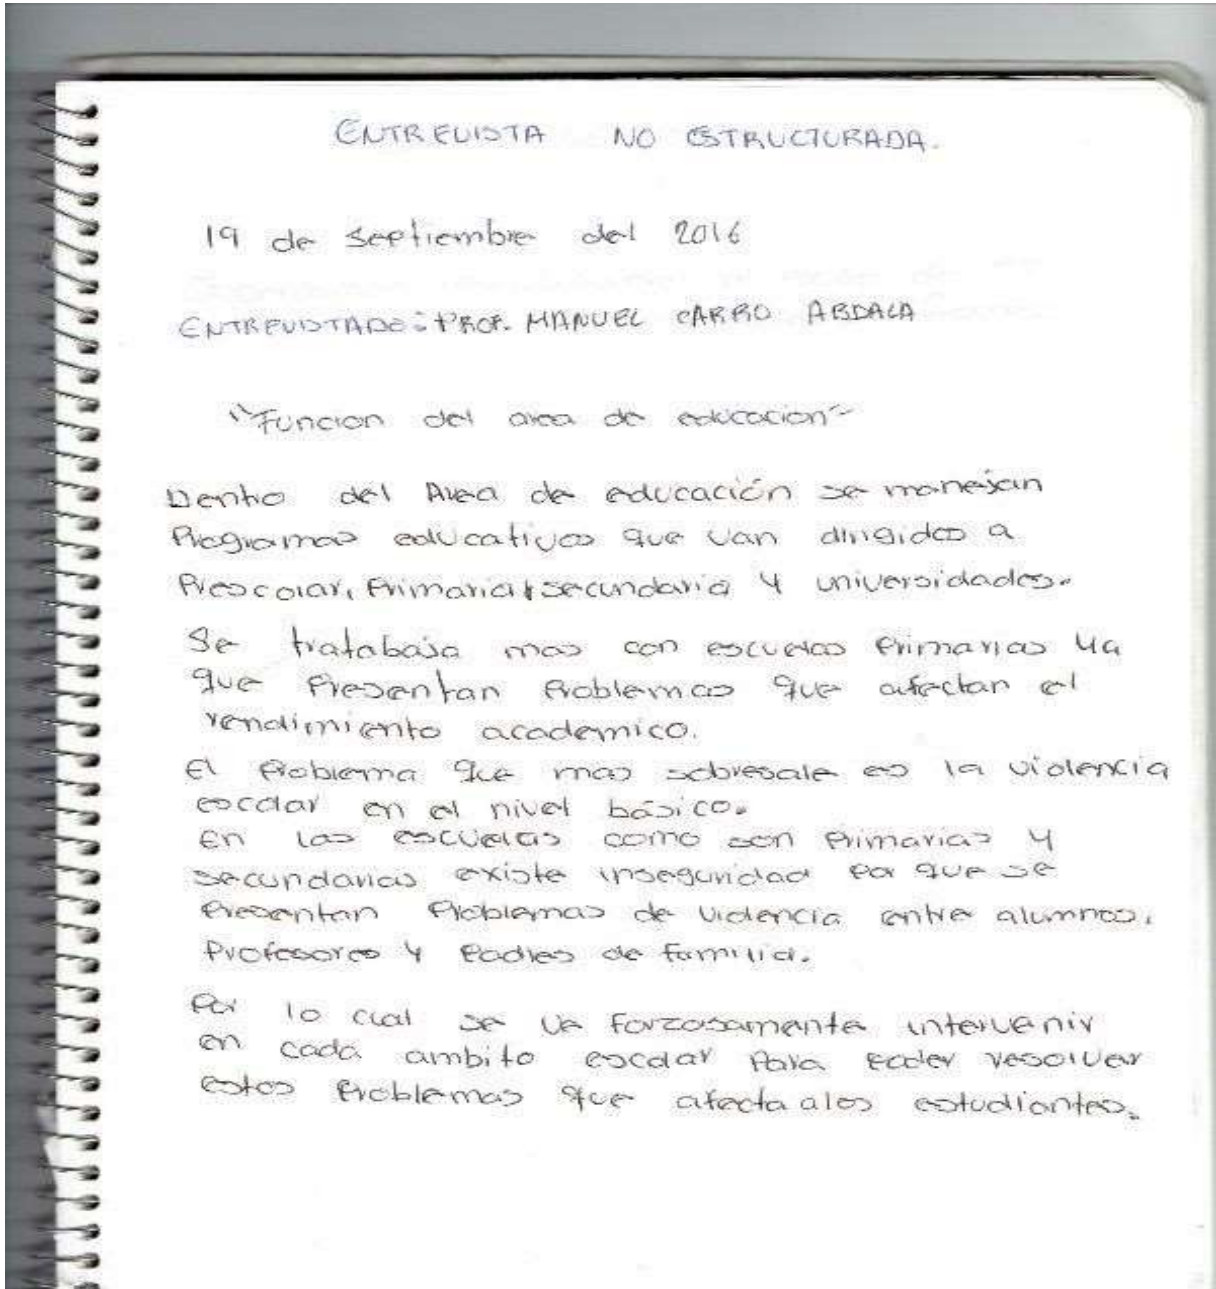 ENTREVISTA NO ESTRUCTURADA.
19 de septiembre del 2016
ENTREVISTADO: PROF. MANUEL CARRO ABDALA
"Funcion del area de educacion"
Dentro del Area de educación se manejan
Programas educativos que van dirigidos a
Prescolar, Primaria, secundaria y universidades.
Se tratabaja mas con escuelas Primarias ya
que Presentan Problemas que afectan el
rendimiento academico.
El Problema que mas sobresale es la violencia
escolar en el nivel básico.
En las escuelas como son Primarias y
secundarias existe inseguridad Por que se
Presentan Problemas de violencia entre alumnos,
Profesores y Padres de familia.
Por lo cual se ve Forzosamente intervenir
en cada ambito escolar Para Poder resolver
estos Problemas que afecta alos estudiantes.